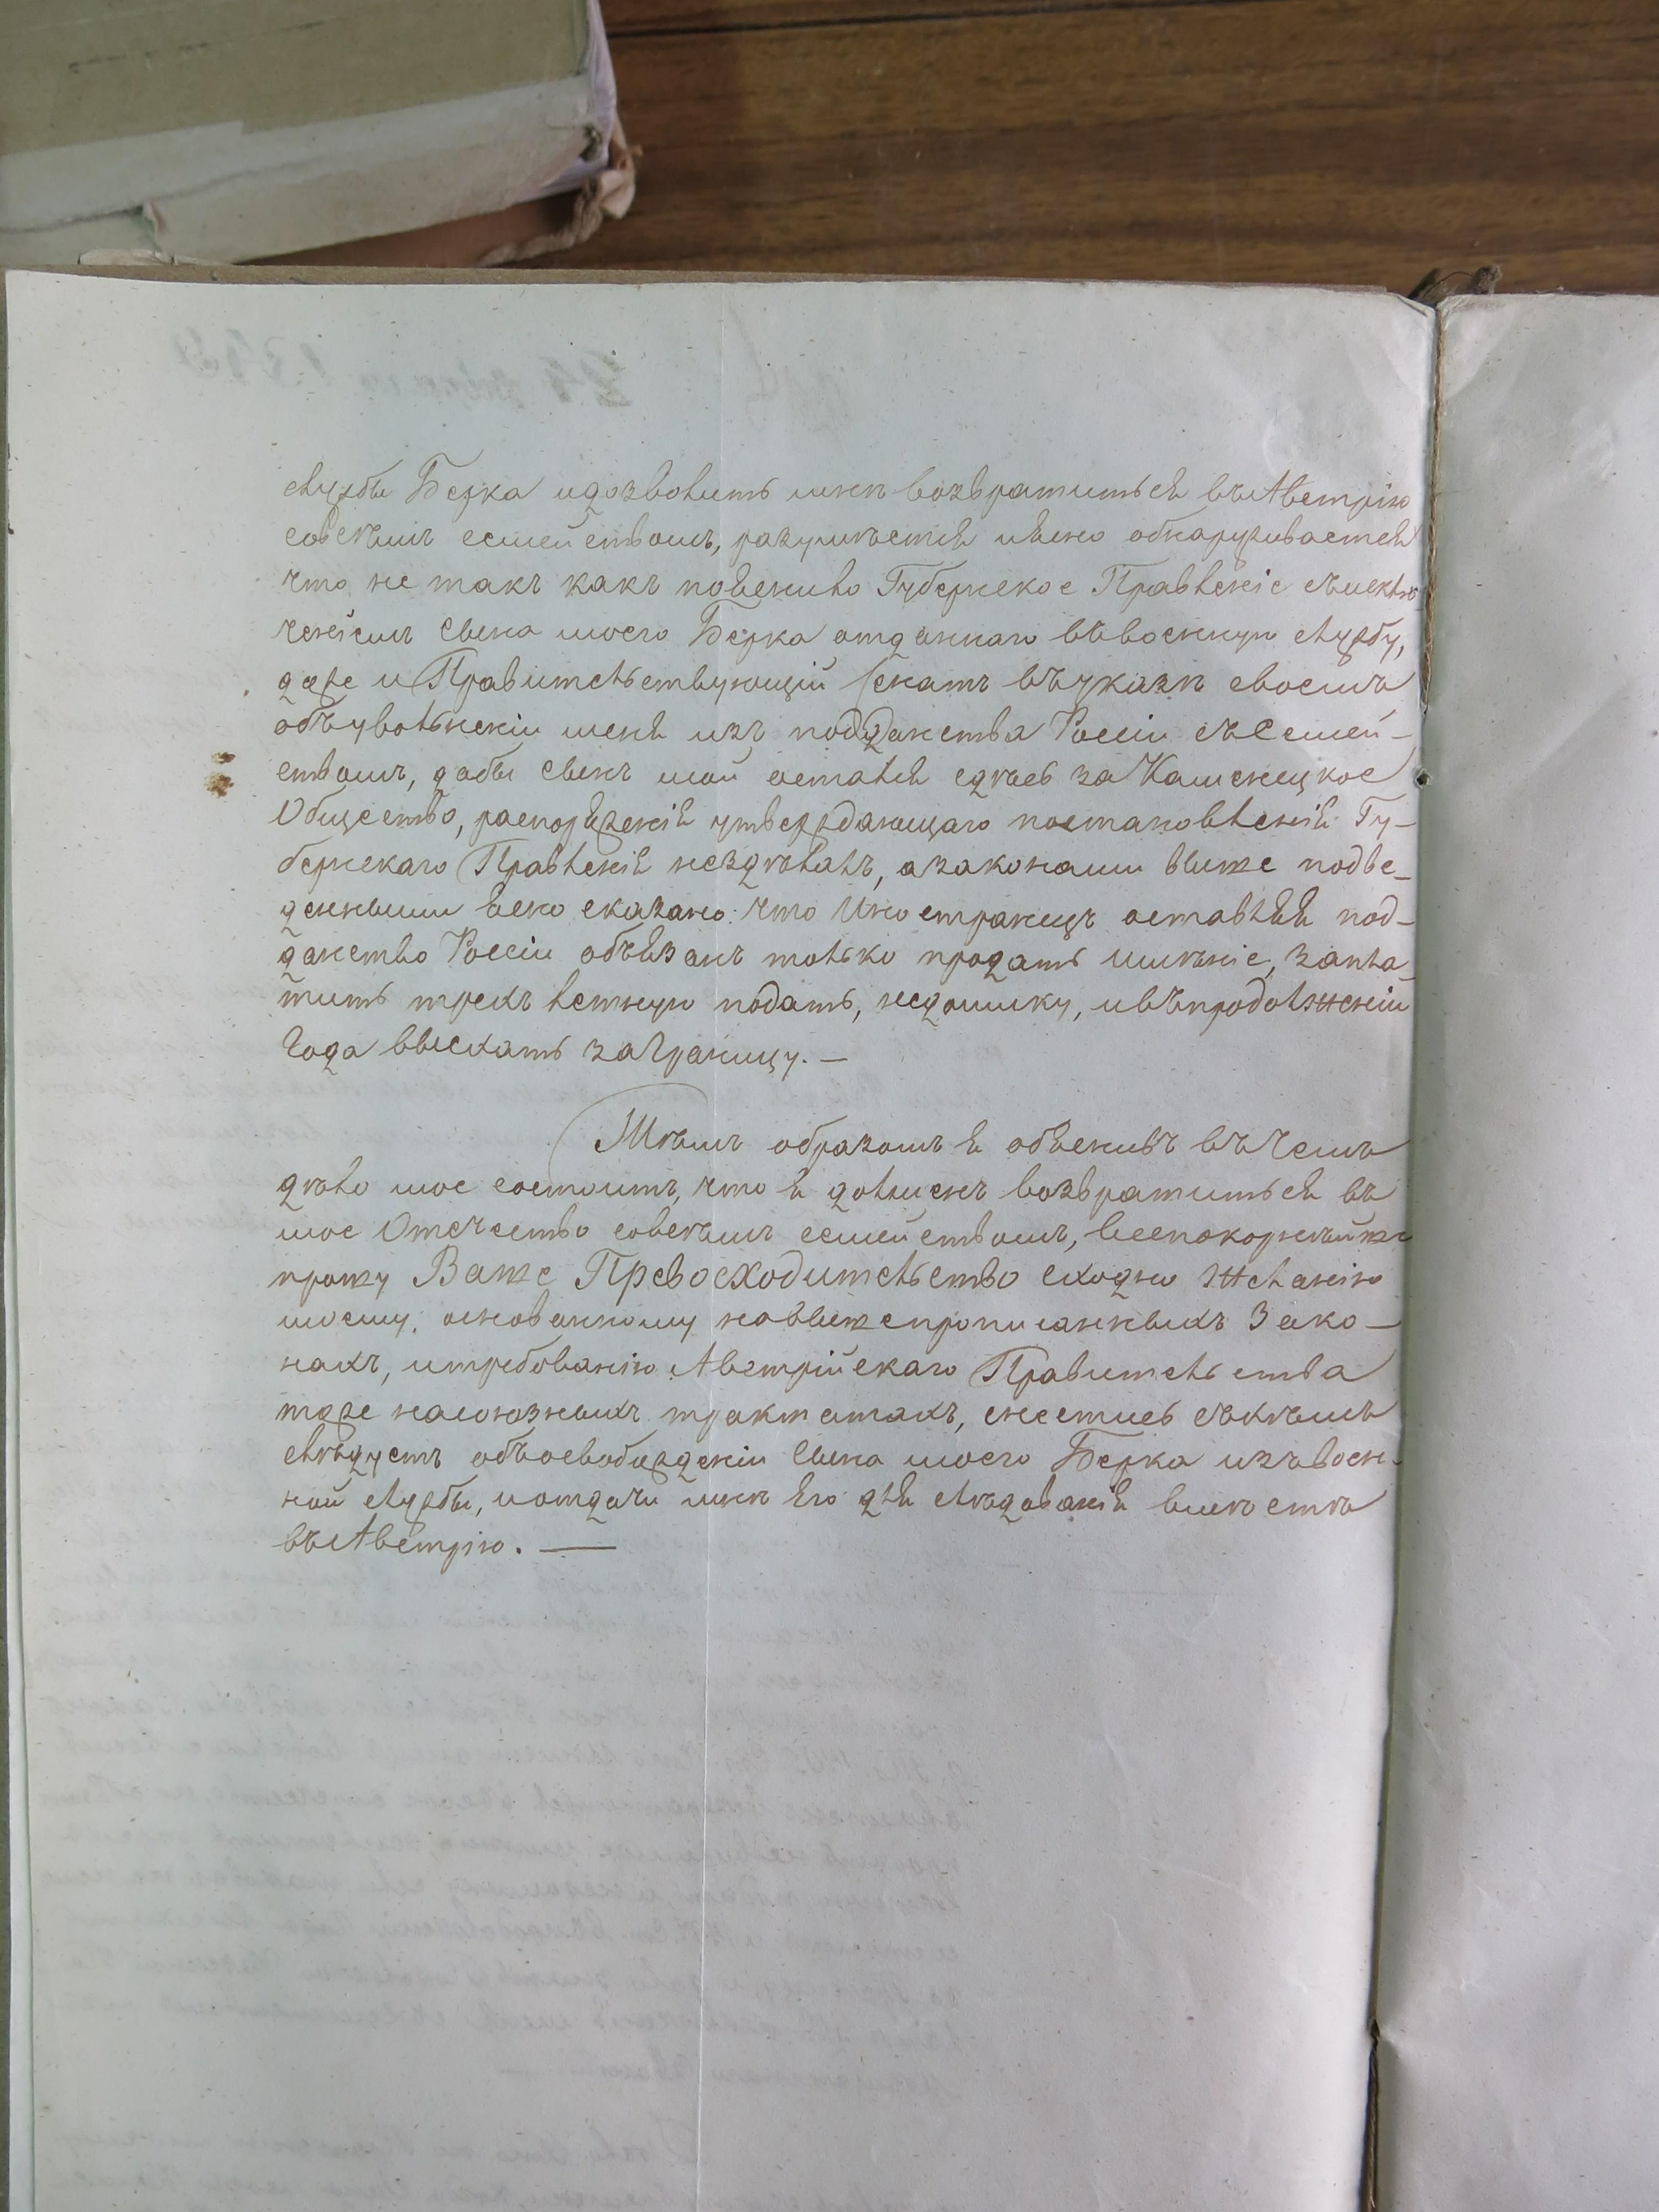 службы Берка идозволить мнѣ возвратиться въ Австрію
совсѣмъ семействомъ, разумѣется иясно обнаруживается
что не такъ какъ пояснило Губернское Правленіе съисклю-
ченіемъ Сына моего Берка отданнаго въвоенную службу,
даже и Правительствующій Сенатъ въуказѣ своемъ
объувольненіи меня изъ подданства Россіи съСемей-
ствомъ, дабы сынъ мой остался сдѣсь за Каменецкое
Общество, распоряженія утверждающаго постановленія Гу-
бернскаго Правленія нездѣлалъ, азаконами выше подве-
денными ясно сказано: что Иностранецъ оставляя под-
данство Россіи объязанъ только продать имѣніе, запла-
тить трехъ летнюю подать, недоимку, ивъпродолженіи
Года выехать заграницу. —
Тѣмъ образомъ я обяснивъ въ чемъ
дѣло мое состоитъ, что я долженъ возвратиться въ
мое Отечество совсѣмъ семействомъ, всепокорнѣйше
прошу Ваше Превосходительство сходно желанію
моему, основанному навышепрописанныхъ Зако-
нахъ, итребованію Австрійскаго Правительства
тоже насоюзныхъ трактатахъ, снестись съкѣмъ
слѣдуетъ объосвобожденіи Сына моего Берка изъвоен-
ной службы, иотдачи мнѣ Его для слѣдованія вместѣ
въ Австрію. —